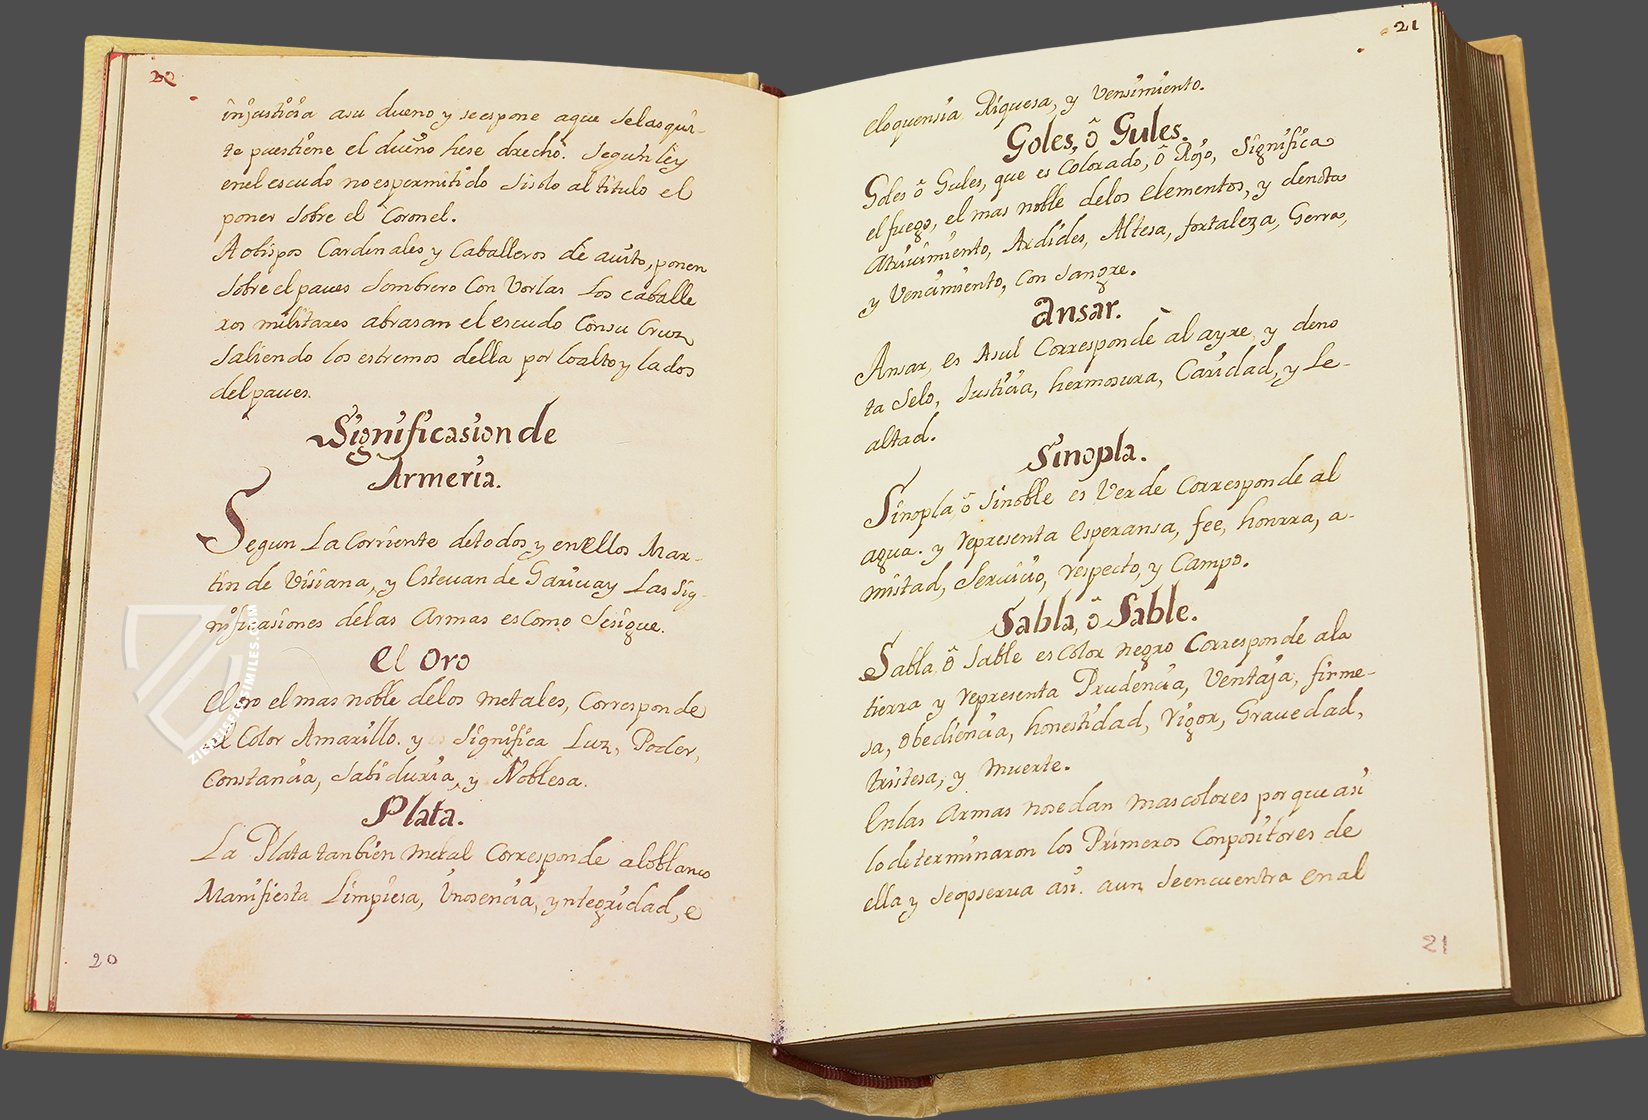 20
injusticia asu dueno y seespone aque selasqui-
te puestiene el dueño hese drecho. Segun ley
enel escudo noespermitido sisolo altitulo el
poner sobre el Coronel.
Aobispos Cardinales y Caballeros de auito, ponen
sobre el paues Sombrero Con Vorlas Los caballe
ros militares abrasan el escudo Consu Cruz
saliendo los estremos della por loalto y lados
del paues.
Significasion de
Armeria.
Segun La Corriente detodos y enellos Mar-
tin de Visiana, y Esteuan de Gariuay Las sig-
nificasiones delas Armas es Como Sesigue.
El Oro
El oro el mas noble delos metales, Corresponde
al Color Amarillo. y es significa Luz, Poder,
Constancia, Sabiduria, y Noblesa.
Plata.
La Plata tanbien metal Corresponde aloblanco
Manifiesta Limpiesa, Ynosencia, yntegridad, e
20
ZIEREIS FACSIMILES.COM
21
Eloquensia Riquesa, y Vensimiento.
Goles, ô Gules.
Goles ô Gules, que es Colorado, ô Rojo, Significa
el fuego, el mas noble delos elementos, y denota
Atriuimiento, Ardides, Altesa, fortaleza, Gerra,
y Vencimiento, con sangre.
Ansar.
Ansar, es Asul Corresponde al ayre, y deno
ta Selo, Justicia, hermosura, Caridad, y Le-
altad.
Sinopla.
Sinopla, ô Sinoble es Verde Corresponde al
agua. y representa esperansa, fee, honrra, a-
mistad, Seruicio, respecto, y Campo.
Sabla, ô Sable.
Sabla ô Sable es Color negro Corresponde ala
tierra y representa Prudencia, Ventaja, firme-
sa, obediencia, honestidad, rigor, Grauedad,
tristesa, y muerte.
Enlas Armas nosedan mas colores por que asi
lo determinaron los Primeros Conpositores de
ella y Seopserua asi. aun Seencuentra enal
21